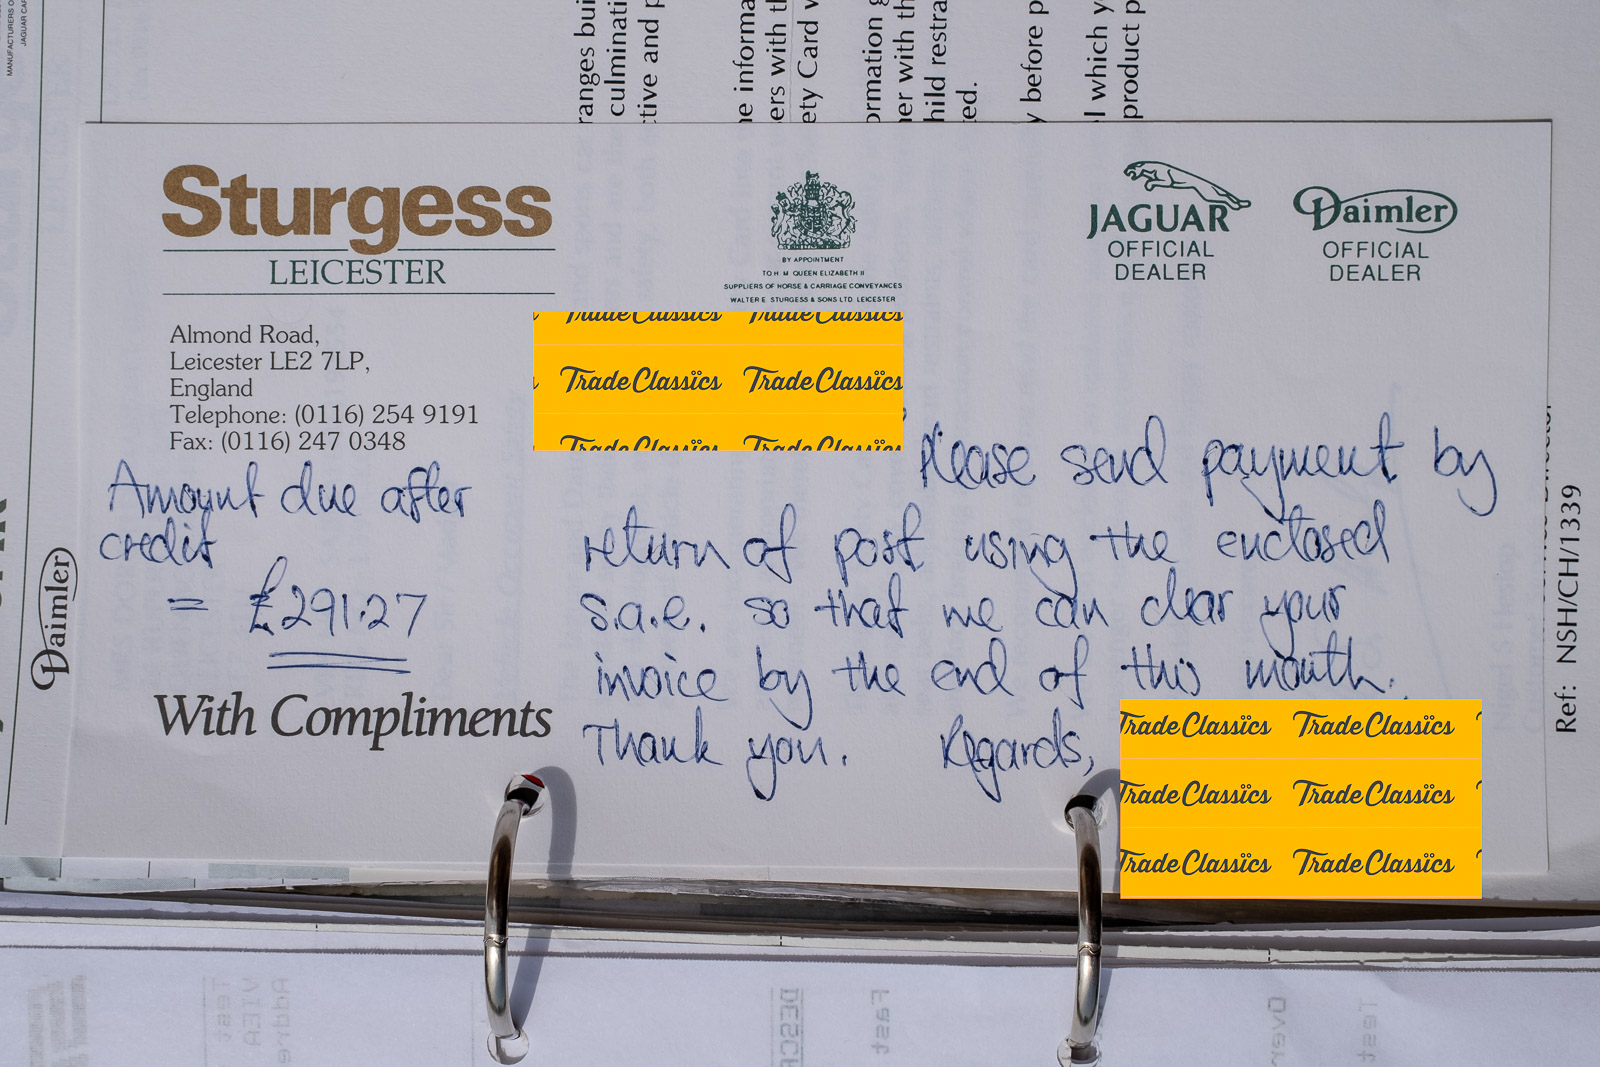 MANUFACTURERS O
JAGUAR CAR
ranges bui
culminati
ctive and p
ne informa
ers with th
ety Card w
ormation g
ner with th
hild restra
ed.
y before p
l which y
product p
Sturgess
LEICESTER
BY APPOINTMENT
TO H M QUEEN ELIZABETH II
SUPPLIERS OF HORSE & CARRIAGE CONVEYANCES
WALTER E STURGESS & SONS LTD LEICESTER
JAGUAR
OFFICIAL
DEALER
Daimler
OFFICIAL
DEALER
Almond Road,
Leicester LE2 7LP,
England
Telephone: (0116) 254 9191
Fax: (0116) 247 0348
TradeClassics TradeClassics
TradeClassics TradeClassics
TradeClassics TradeClassics
Amount due after
credit
= £291.27
Please send payment by
return of post using the enclosed
s.a.e. so that we can clear your
invoice by the end of this month.
Thank you. Regards,
With Compliments
TradeClassics TradeClassics
TradeClassics TradeClassics
TradeClassics TradeClassics
Daimler
Ref: NSH/CH/1339